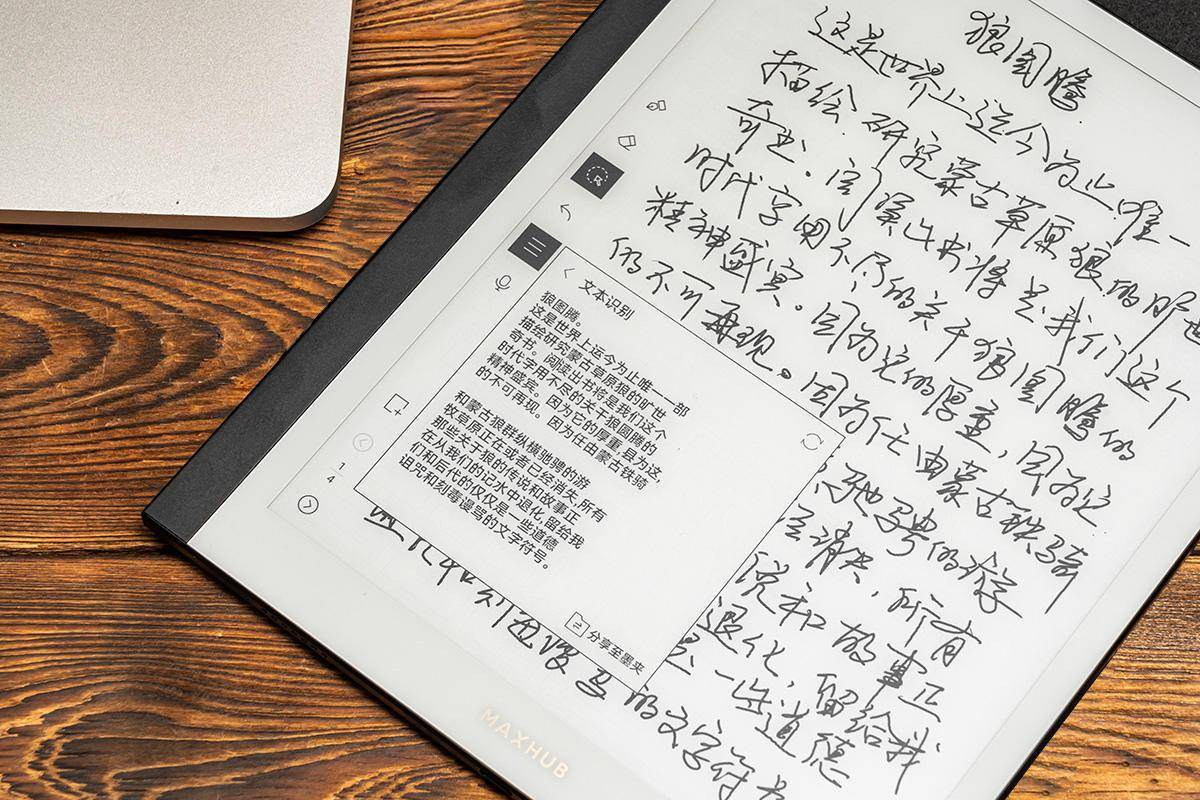 狼图腾
这是世界上迄今为止唯一
描绘、研究蒙古草原狼的旷世
奇书。阅读此书将是我们这个
时代享用不尽的关于狼图腾的
精神盛宴。因为它的厚重,因为这
的不可再现。因为任由蒙古铁骑
驰骋的游
消失,所有
说和故事正
退化,留给我
是一些道德
的文字符号
文本识别
狼图腾。
这是世界上运今为止唯一一部
描绘研究蒙古草原狼的旷世
奇书。阅读出书将是我们这个
时代字用不尽的关干狼圆腾的
精神盛宾。因为它的厚重,县为这,
的不可再现。因为任由蒙古铁骑
和蒙古狼群纵横驰骋的游
牧草原正在或者已经消失,所有
那些关于狼的传说和故事正
在从我们的记水中退化,留给我
们和后代的仅仅是一些道德
诅咒和刻毒谩骂的文字符号。
分享至墨夹
1
4
MAXHUB